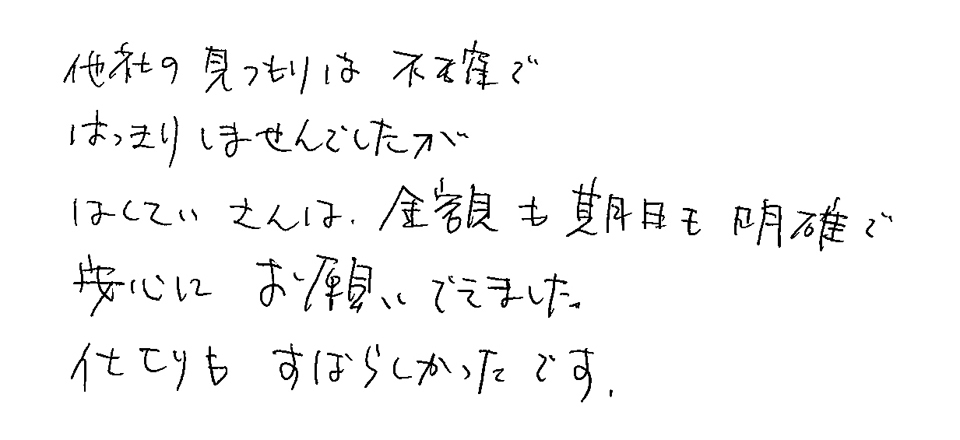 他社の見つもりは不確で
はっきりしませんでしたが
はくていさんは、金額も期日も明確で
安心にお願いできました。
仕上りもすばらしかったです。